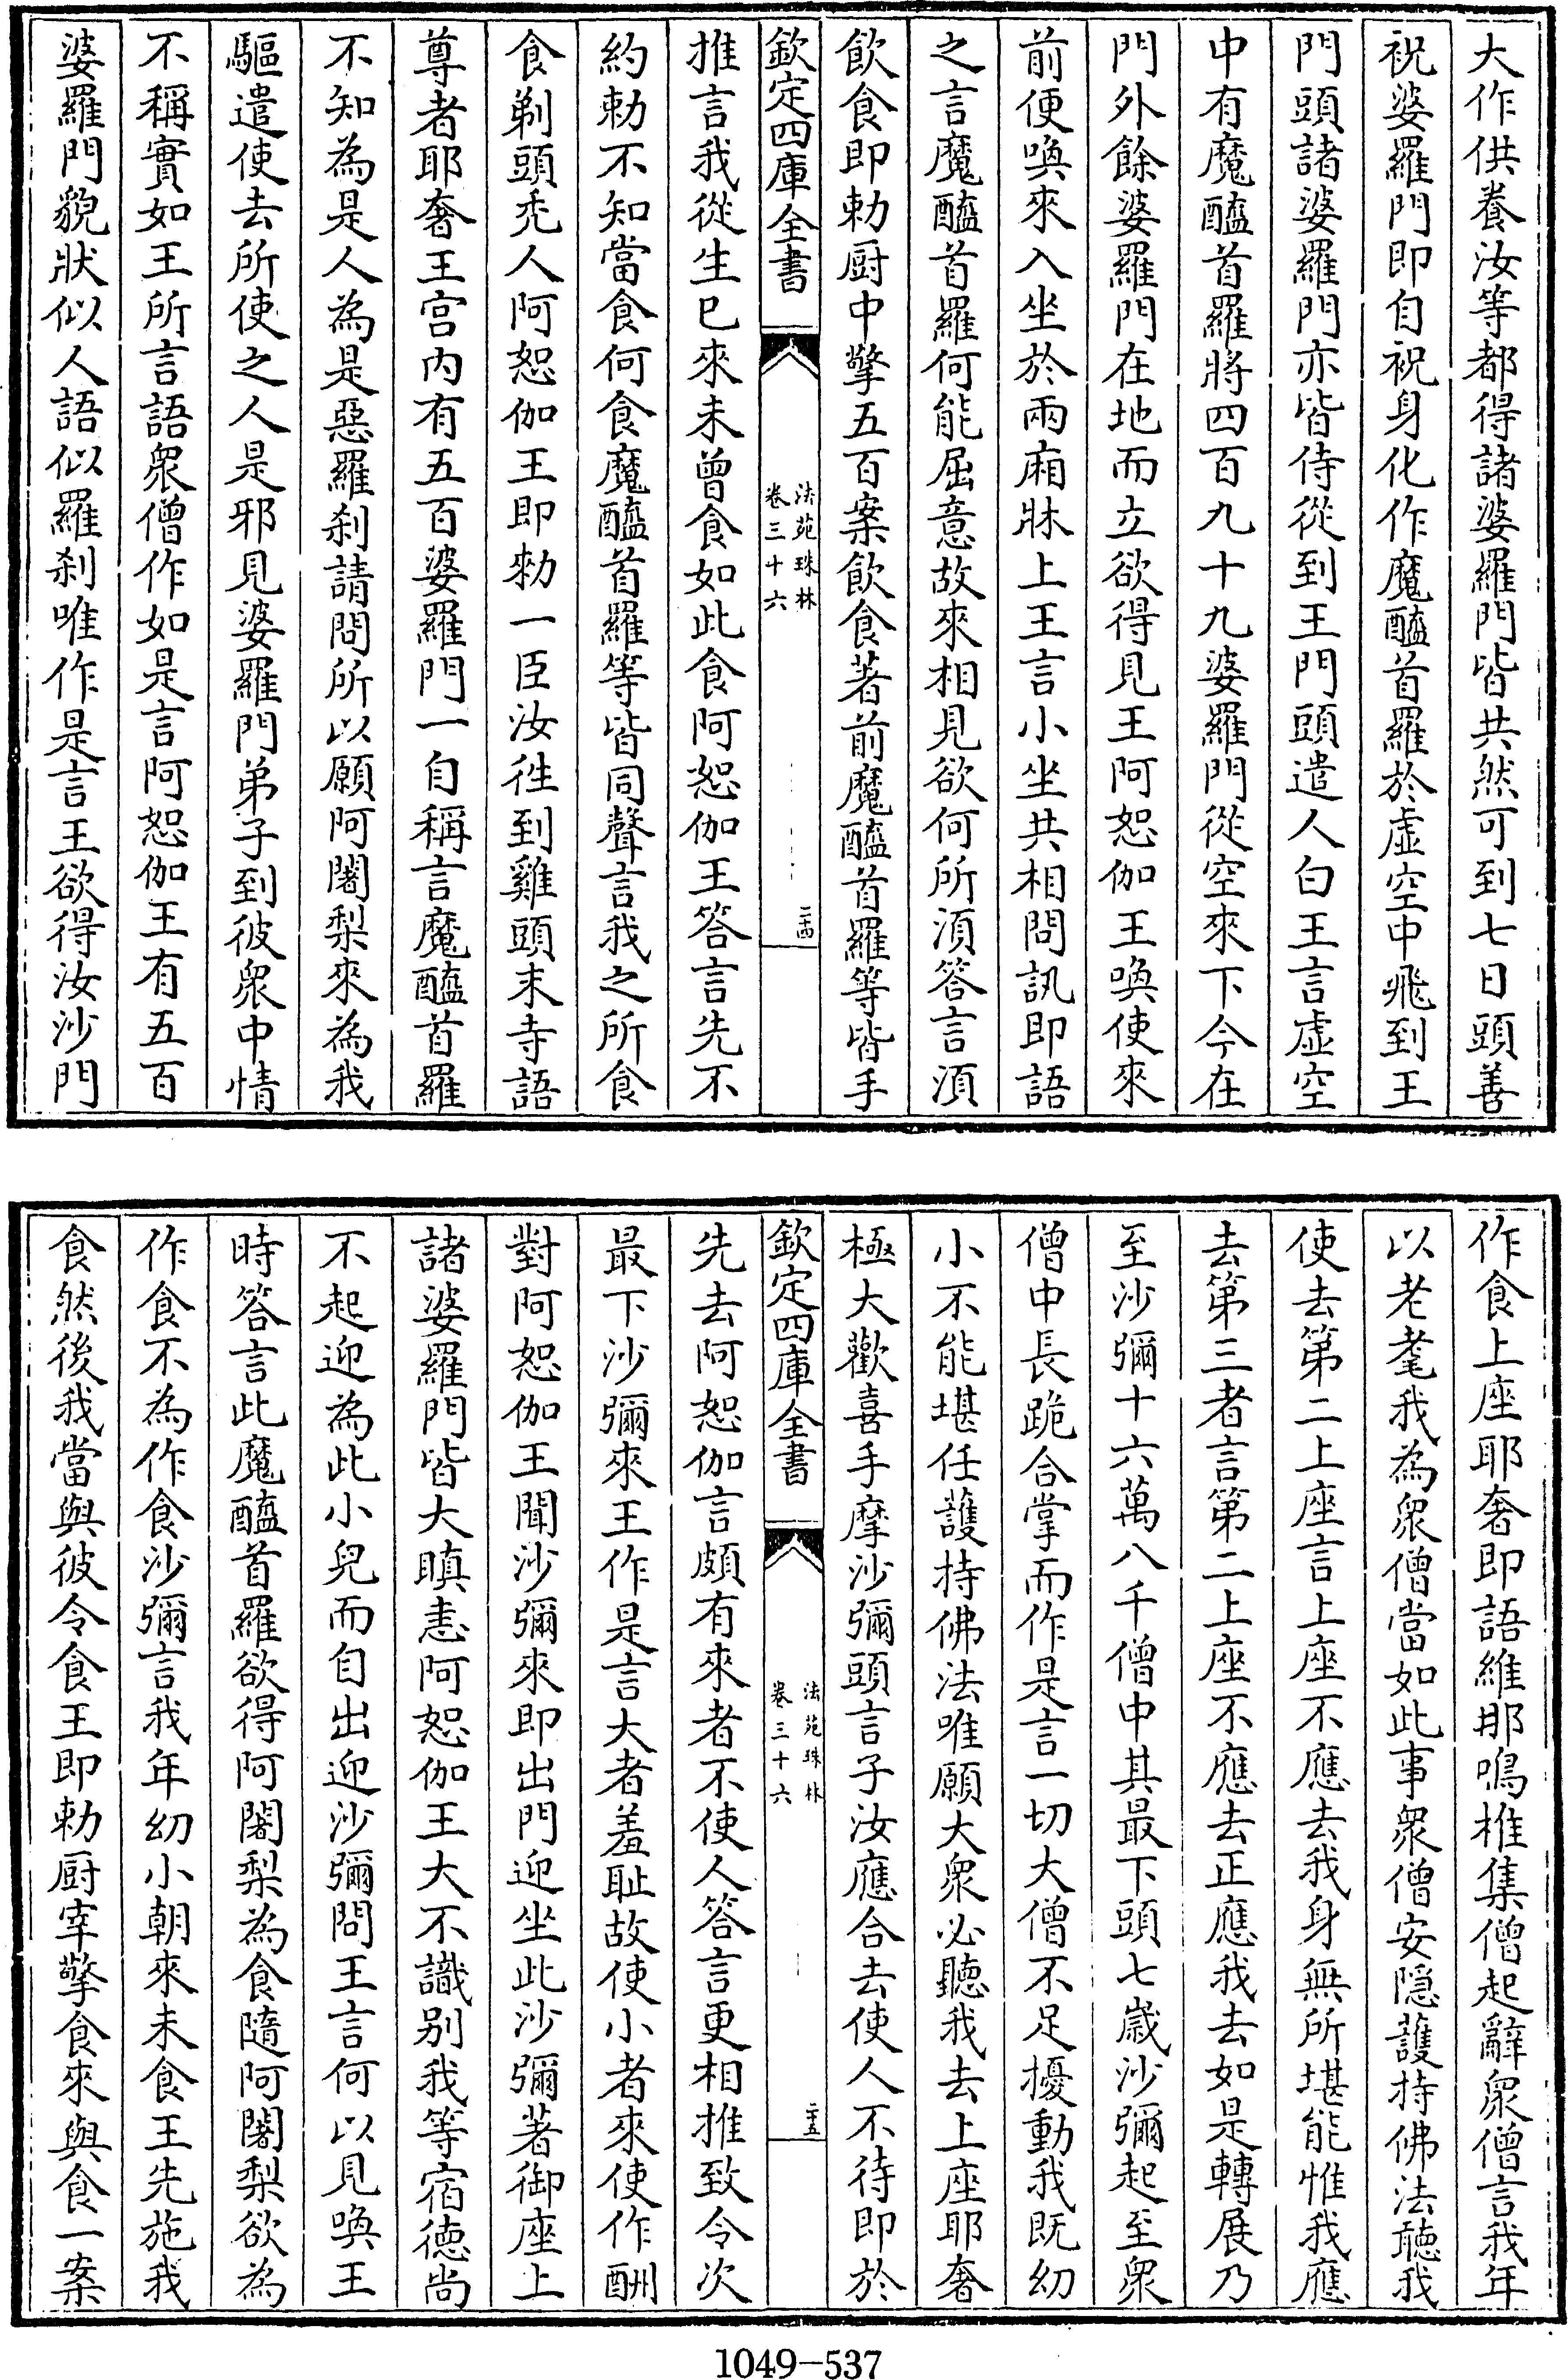 大作供養汝等都得諸婆羅門皆共然可到七日頭善
祝婆羅門即自祝身化作魔醯首羅於虚空中飛到王
門頭諸婆羅門亦皆侍從到王門頭遣人白王言虚空
中有魔醯首羅將四百九十九婆羅門從空來下今在
門外餘婆羅門在地而立欲得見王阿恕伽王喚使來
前便喚來入坐於兩廂牀上王言小坐共相問訊即語
之言魔醯首羅何能屈意故來相見欲何所須答言須
飲食即勅厨中擎五百案飲食著前魔醯首羅等皆手
欽定四庫全書
法苑珠林
卷三十六
二十四
推言我從生已來未曾食如此食阿恕伽王答言先不
約勅不知當食何食魔醯首羅等皆同聲言我之所食
食剃頭禿人阿恕伽王即勅一臣汝徃到雞頭末寺語
尊者耶奢王宫内有五百婆羅門一自稱言魔醯首羅
不知為是人為是惡羅刹請問所以願阿闍梨來為我
驅遣使去所使之人是邪見婆羅門弟子到彼衆中情
不稱實如王所言語衆僧作如是言阿恕伽王有五百
婆羅門貌狀似人語似羅刹唯作是言王欲得汝沙門
作食上座耶奢即語維那鳴椎集僧起辭衆僧言我年
以老耄我為衆僧當如此事衆僧安隠護持佛法聽我
使去第二上座言上座不應去我身無所堪能惟我應
去第三者言第二上座不應去正應我去如是轉展乃
至沙彌十六萬八千僧中其最下頭七歲沙彌起至衆
僧中長跪合掌而作是言一切大僧不足擾動我既幼
小不能堪任護持佛法唯願大衆必聽我去上座耶奢
極大歡喜手摩沙彌頭言子汝應合去使人不待即於
欽定四庫全書
法苑珠林
卷三十六
二十五
先去阿恕伽言頗有來者不使人答言更相推致令次
最下沙彌來王作是言大者羞耻故使小者來使作酬
對阿恕伽王聞沙彌來即出門迎坐此沙彌著御座上
諸婆羅門皆大瞋恚阿恕伽王大不識别我等宿德尚
不起迎為此小兒而自出迎沙彌問王言何以見喚王
時答言此魔醯首羅欲得阿闍梨為食隨阿闍梨欲為
作食不為作食沙彌言我年幼小朝來未食王先施我
食然後我當與彼令食王即勅厨宰擎食來與食一案
1049-537